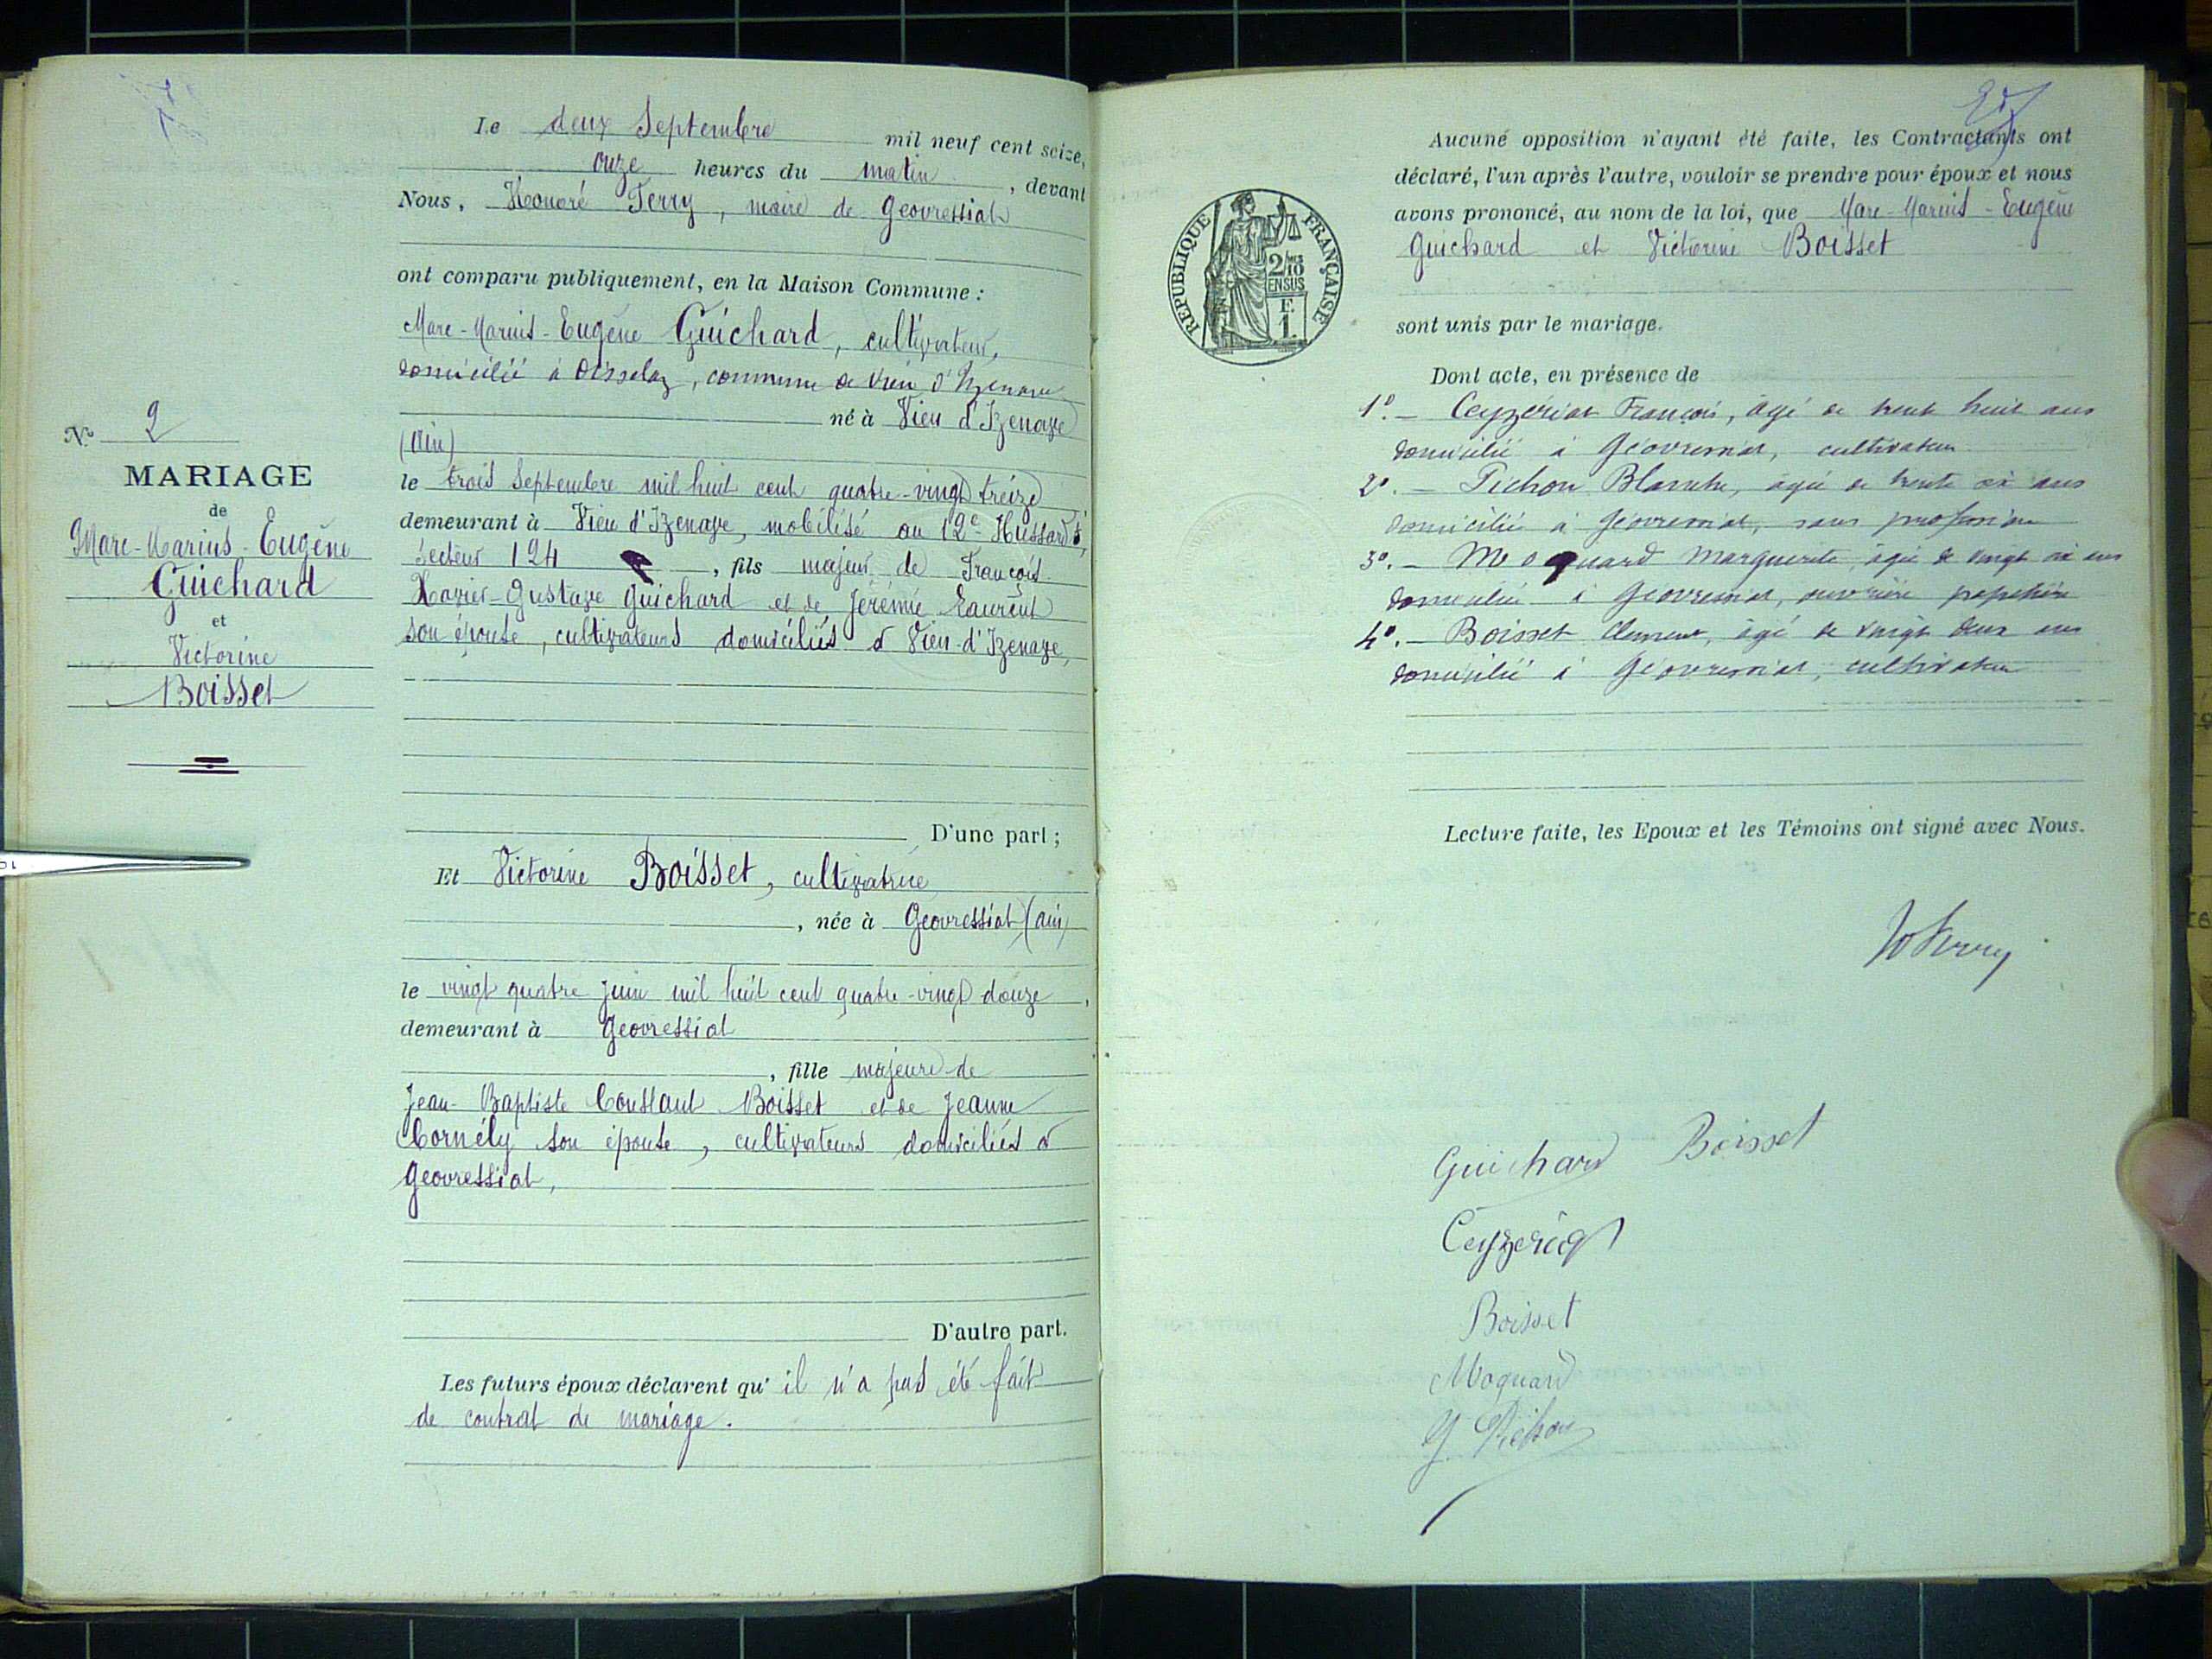 Le deux Septembre mil neuf cent seize,
onze heures du matin, devant
Nous, Honoré Ferry, maire de Geovressiat
ont comparu publiquement, en la Maison Commune :
Marc-Marius-Eugène Guichard, cultivateur,
domicilié à Oisselaz, commune de Vieu d'Izenave
né à Vieu d'Izenave
(Ain)
le trois Septembre mil huit cent quatre-vingt treize
demeurant à Vieu d'Izenave, mobilisé au 12e Hussards,
Secteur 124, fils majeur de François
Xavier-Gustave Guichard et de Jérémie Laurent
son épouse, cultivateurs domiciliés à Vieu-d'Izenave,
D'une part ;
No 2
MARIAGE
de
Marc-Marius-Eugène
Guichard
et
Victorine
Boisset
Et Victorine Boisset, cultivatrice
, née à Geovressiat (Ain)
le vingt quatre Juin mil huit cent quatre-vingt douze,
demeurant à Geovressiat
, fille majeure de
Jean-Baptiste Constant Boisset et de Jeanne
Cornély son épouse, cultivateurs domiciliés à
Geovressiat,
D'autre part.
Les futurs époux déclarent qu'il n'a pas été fait
de contrat de mariage.
REPUBLIQUE FRANÇAISE
2/10
EN SUS
F.
1.
Aucune opposition n'ayant été faite, les Contractants ont
déclaré, l'un après l'autre, vouloir se prendre pour époux et nous
avons prononcé, au nom de la loi, que Marc-Marius-Eugène
Guichard et Victorine Boisset
sont unis par le mariage.
Dont acte, en présence de
1º. - Ceyzériat François, âgé de trente huit ans
domicilié à Géovressiat, cultivateur
2º. - Pichon Blanche, âgée de trente six ans
domicilié à Géovressiat, sans profession
3º. - Moquard Marguerite, âgée de vingt six ans
domiciliée à Géovressiat, ouvrière
4º. - Boisset Clément, âgé de vingt deux ans
domicilié à Géovressiat, cultivateur
Lecture faite, les Epoux et les Témoins ont signé avec Nous.
Ho Ferry
Guichard Boisset
Ceyzériat
Boisset
Moquard
Pichon